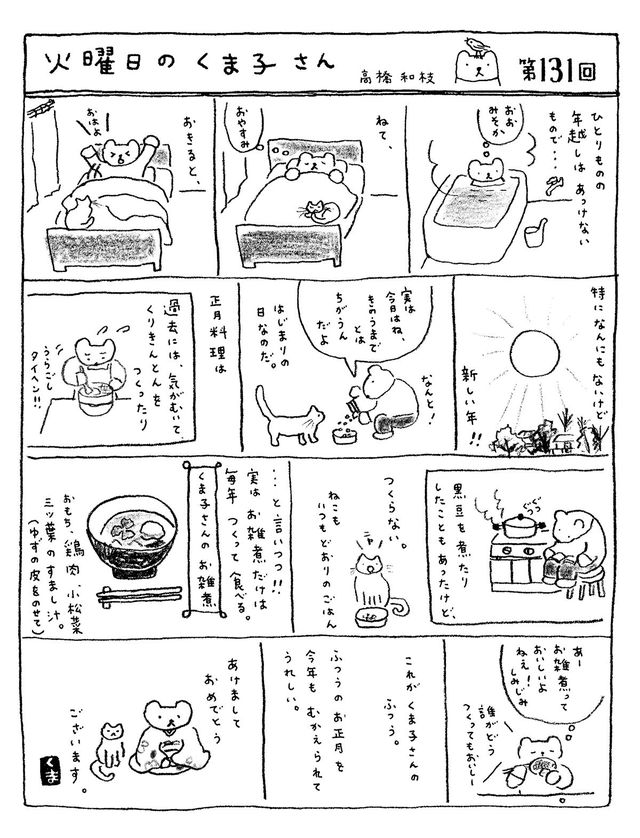 火曜日のくま子さん
高橋和枝
第131回
ひとりものの
年越しはあっけない
もので・・・
おお
みそか
ねて、
おやすみ
おきると、
おはよ
特になんにもないけど
新しい年!!
なんと!
実は
今日はね、
きのうまで
とは
ちがうん
だよ
はじまりの
日なのだ。
正月料理は
過去には、気がむいて
くりきんとんを
つくったり
うらごし
タイヘン!!
黒豆を煮たり
したこともあったけど、
ぐつぐつ
つくらない。
ニャ
ねこも
いつもどおりのごはん
・・・と言いつつ!!
実はお雑煮だけは
毎年つくって食べる。
くま子さんのお雑煮
おもち、鶏肉、小松菜
三ッ葉のすまし汁。
(ゆずの皮をのせて)
あー
お雑煮って
おいしいよ
ねえ!
しみじみ
誰がどう
つくってもおいしー
これがくま子さんの
ふつう。
ふつうのお正月を
今年もむかえられて
うれしい。
あけまして
おめでとう
ございます。
くま